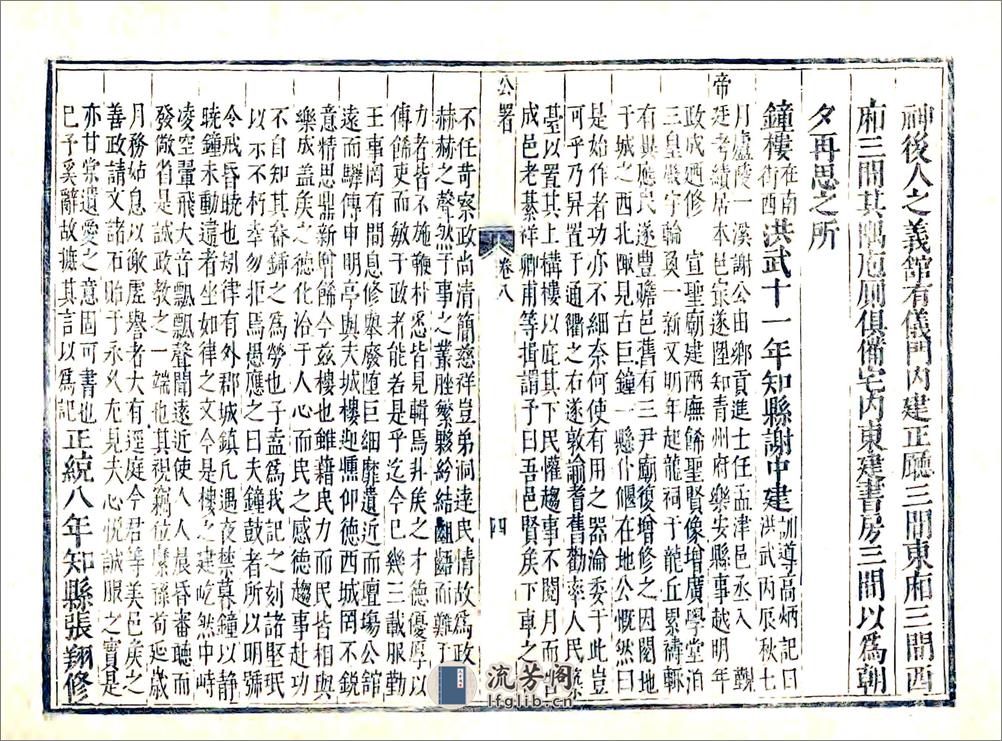 神後人之義館有儀門內建正廳三間東廂三間西
廂三間其隅庖厠俱備宅內東建書房三間以爲朝
夕再思之所
鐘樓在南街西洪武十一年知縣謝中建訓導高炳記曰洪武丙辰秋七
月廬陵一溪謝公由鄉貢進士任孟津邑丞入覲
帝廷考績居本邑最遂陞知青州府樂安縣事越明年
政成廼修宣聖廟建兩廡餙聖賢像增廣學堂
三皇殿宇輪奐一新又明年起龍祠于龍丘累禱輒
有其應民遂豊贍邑舊有三尹廟復增修之因閱地
于城之西北陬見古巨鐘一懸仆偃在地公慨然曰
是始作者功亦不細奈何使有用之器淪委于此豈
可乎乃舁置于通衢之右遂敦諭耆舊勸率人民築
䑓以置其上構樓以庇其下民懽趨事不閱月而告
成邑老綦祥卿甫等揖謂予曰吾邑賢矦下車之
公署 卷八 四
不任苛察政尚清簡慈祥豈弟洞逹民情故爲政
赫赫之聲然于事之叢脞繁縣紛結齟齬而難于
力者皆不施鞭朴悉皆見輯焉非矦之才德優厚
傳餙吏而敏于政者能若是乎迄今巳幾三載服勤
王事罔有間息修獘廢墮巨細靡遺近而壇塲公館
遠而驛傳申明亭與夫城樓迎薰仰德西城罔不銳
意精思鼎新增餙今玆樓也雖藉民力而民皆相與
樂成盖矦之德化洽于人心而民之感德趨事赴功
不自知其畚鍤之爲勞也子盍爲我記之刻諸堅珉
以示不朽幸勿拒焉愚應之曰夫鐘鼓者所以明號
令戒昏曉也矧律有外郡城鎮凢遇夜禁暮鐘以静
曉鐘未動違者坐如律之文今是樓之建屹然中峙
凌空翬飛大音飄飄聲聞遠近使人人晨昏審聽而
發儆省是誠政教之一端也其視竊位縻祿苟延歲
月務姑息以徼虛譽者大有逕庭今君等美邑矦之
善政請文諸石貽于永久尤見夫心悅誠服之實是
亦甘棠遺愛之意固可書也
巳予奚辭故摭其言以爲記正統八年知縣張翔修
流芳阁
lfglib.cn